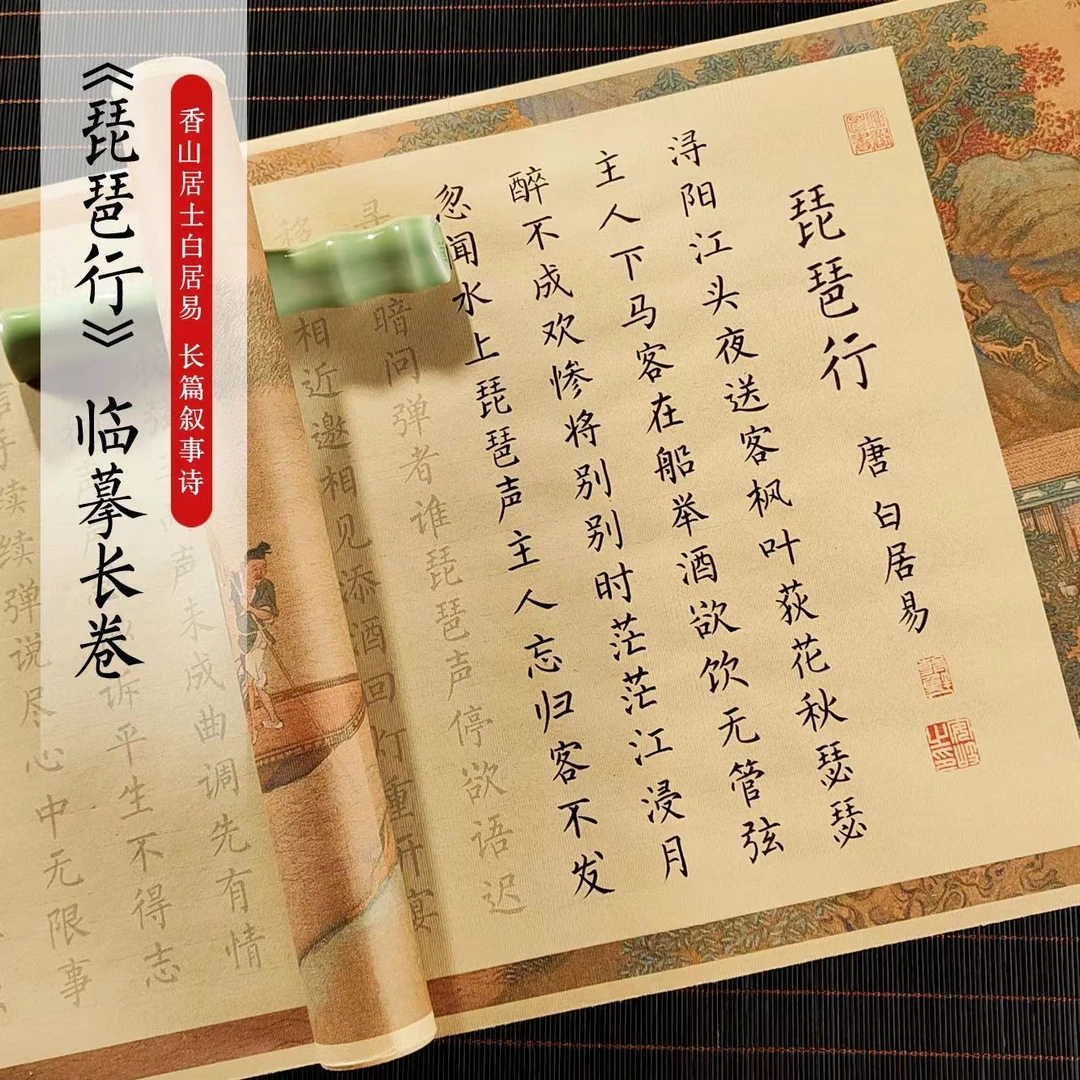 《琵琶行》 临摹长卷
香山居士白居易 长篇叙事诗
琵琶行 唐 白居易
浔阳江头夜送客枫叶荻花秋瑟瑟
主人下马客在船举酒欲饮无管弦
醉不成欢惨将别别时茫茫江浸月
忽闻水上琵琶声主人忘归客不发
寻暗问弹者谁琵琶声停欲语迟
移相近邀相见添酒回灯重开宴
声未成曲调先有情
诉平生不得志
手续续弹说尽心中无限事